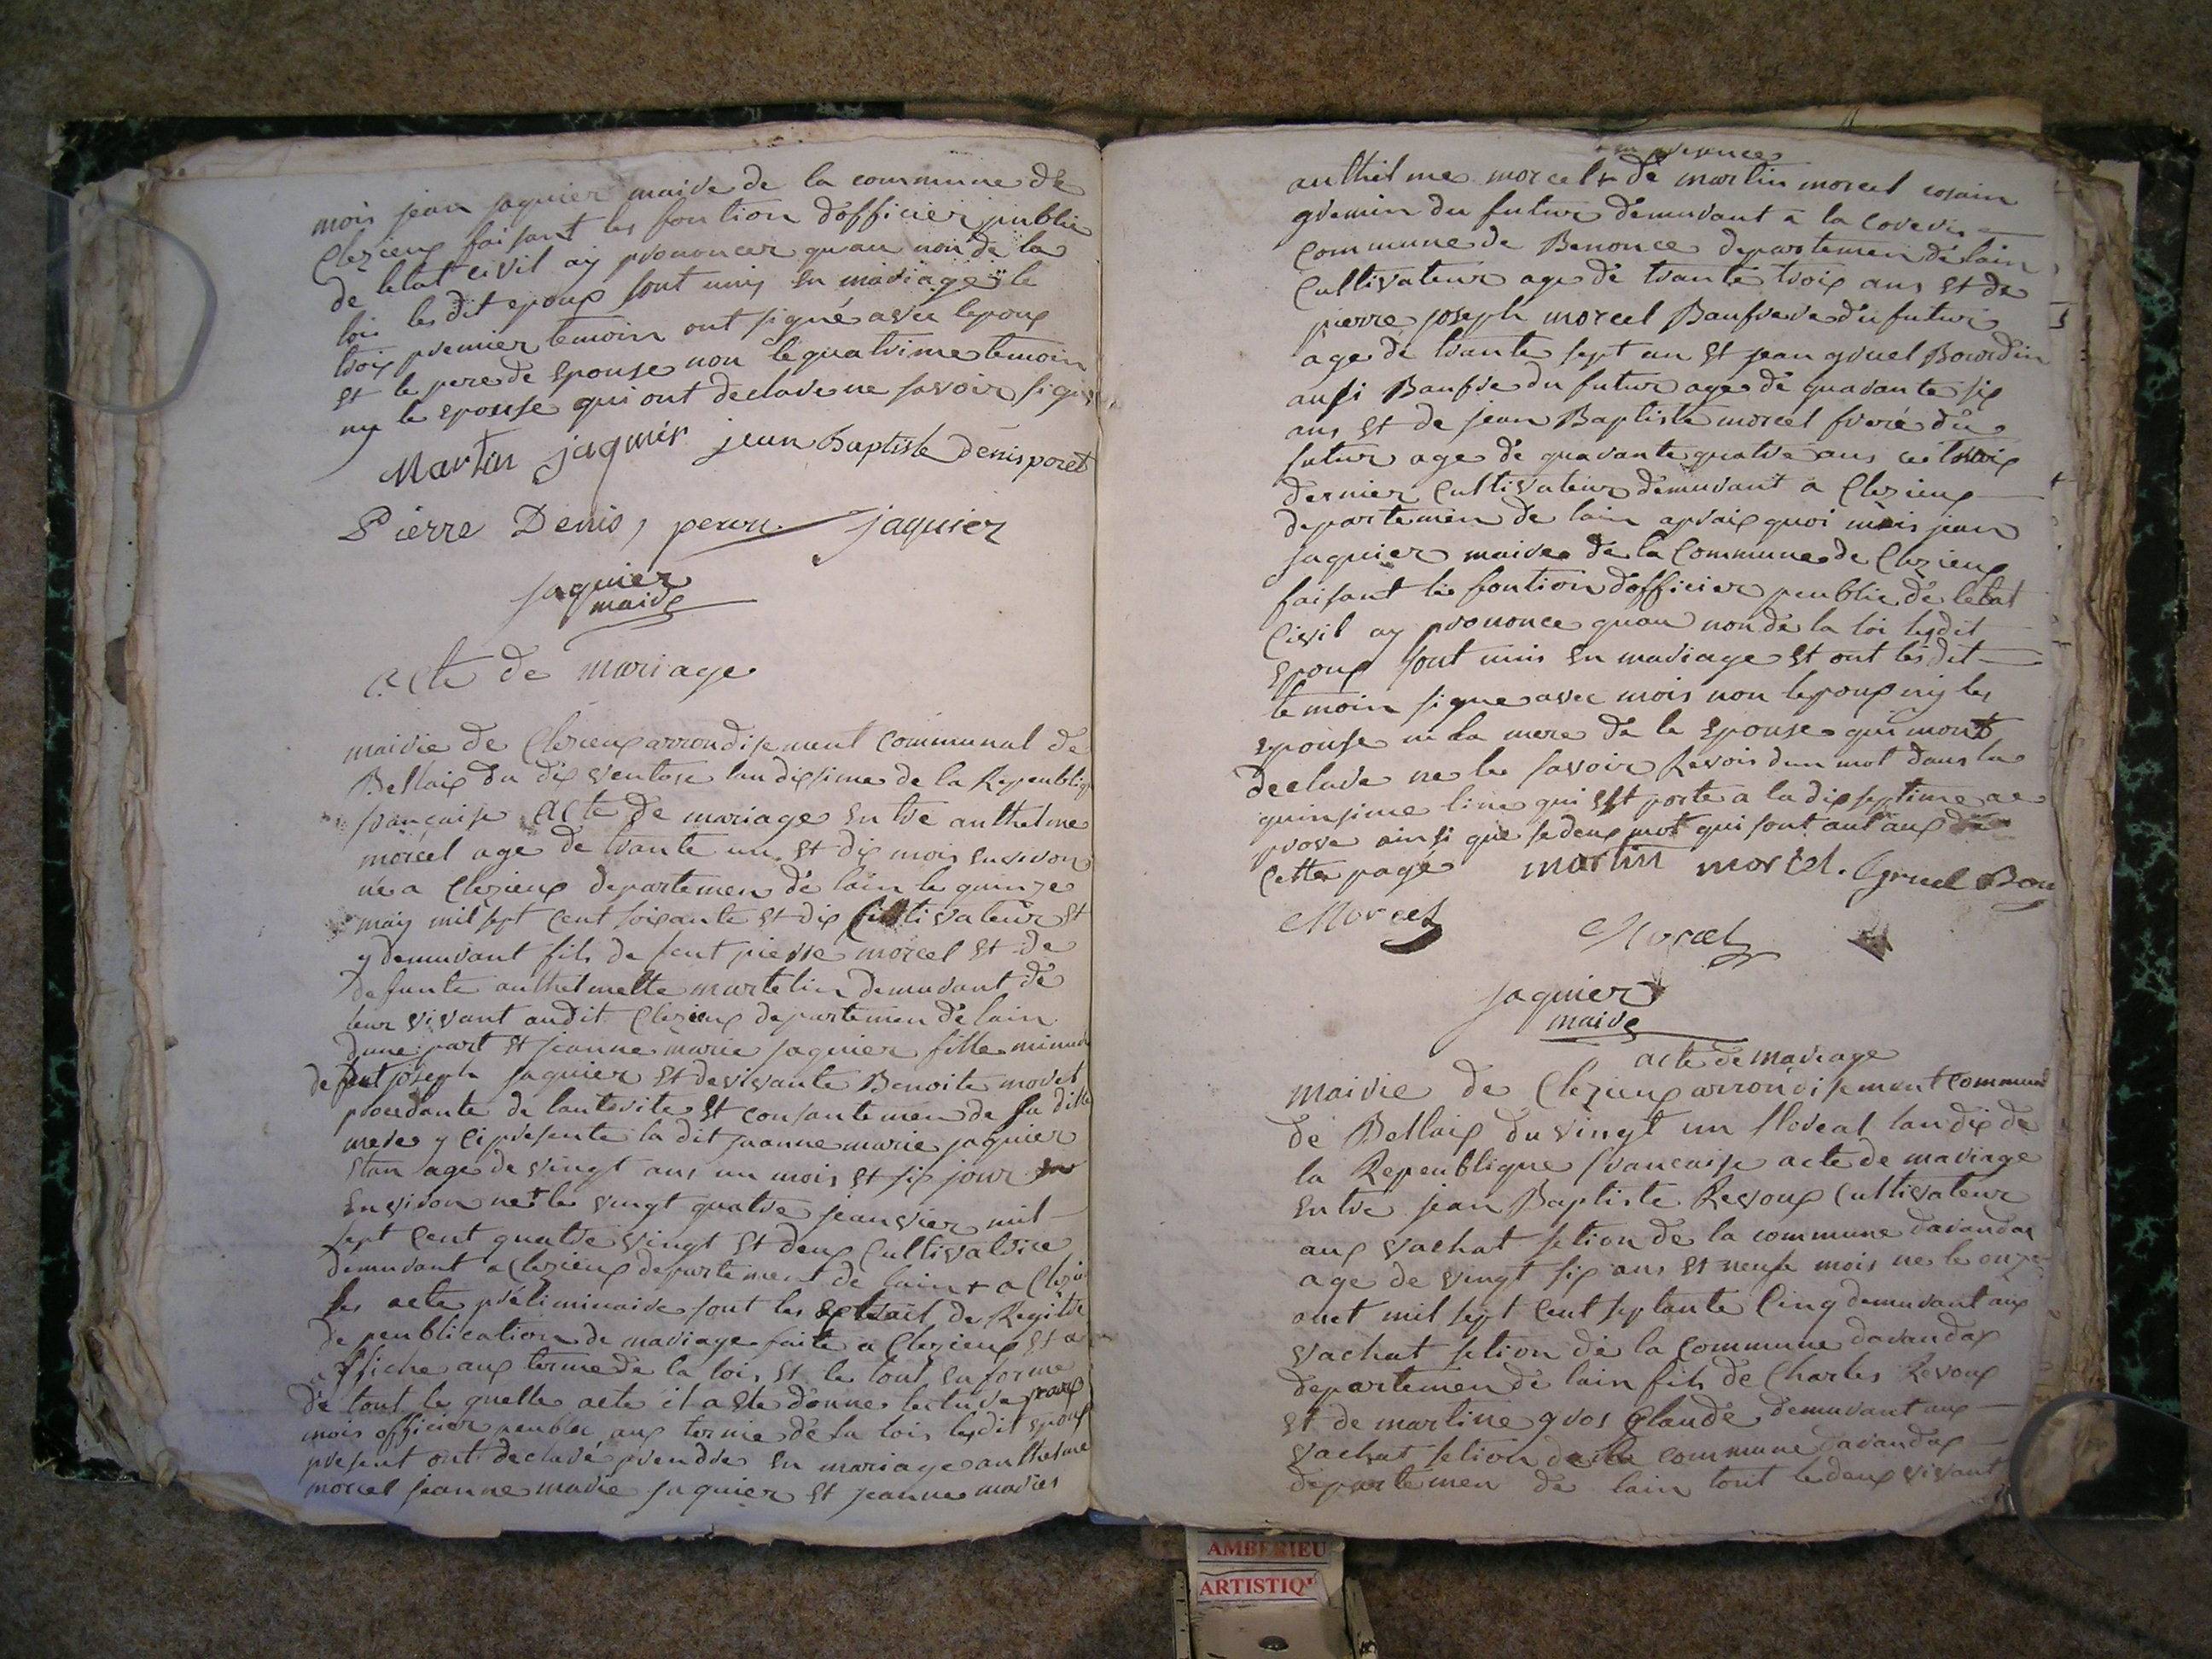 mois jean jaquier maire de la commune de
Clezieux faisant les fontion dofficier public
de letat civil ay prononcer quau non de la
loi les dit epoux sont unis en mariage le
trois premier temoin ont signé avec lepoux
et le pere de epouse non le quatrime temoin
ny le epouse qui ont declare ne savoir signe
Martin jaquier jean Baptiste denis poret
Pierre Denis, perou jaquier
jaquier
maire
acte de mariage
mairie de Clezieux arrondisement communal de
Bellaix du dix ventose lan dixsime de la Republiq
francaise acte de mariage entre anthelme
morcel age de trante un et dix mois environ
né a Clezieux departemen de lain le quinze
may mil sept cent soixante et dix Cultivateur et
y demurant fils de feut pierre morcel et de
defunte anthelmette martelin demurant de
leur vivant audit Clezieux departemen de lain
dune part et jeanne marie jaquier fille mineur
de feut joseph jaquier et de vivante Benoite morcel
procedante de lautorite et consantemen de sa dille
mere y ci presente la dit jeanne marie jaquier
etan age de vingt ans un mois et six jour en
environ net le vingt quatre jeanvier mil
sept cent quatre vingt et deux Cultivatrice
demurant a Clezieux departement de lain + a Clezie
les acte préliminaire sont les extrait de Registre
de peublication de mariage faite a Clezieux et a
affiche aux terme de la loi, et le tout en forme
de tout le quelle acte il a ete donne lecture par
mois officier peublic aux terme de la lois lesdit epoux
present ont declaré prendre en mariage anthelme
morcel jeanne marie jaquier et jeanne maries
en presence
anthelme morcel + de martin morcel cosain
gremin du futur demurant a la coreri
commune de Benonce departemen de lain
Cultivateur age de trante trois ans et de
pierre joseph morcel Baufrere du futur
age de trante sept an et jean gruel Bourdin
ausi Baufre du futur age de quarante six
ans et de jean Baptiste morcel frere du
futur age de quarante quatre ans ce trois
dernier Cultivateur demurant a Clezieux
departemen de lain apraix quoi mois jean
jaquier maire de la Commune de Clezieux
faisant les fontion dofficier peublic de letat
Civil ay prononce quau non de la loi lesdit
epoux sont unis en mariage et ont lesdit
temoin signe avec mois non lepoux ny les
epouse ni la mere de le epouse qui mont
declare ne le savoir Revois dun mot dans la
quinsime line qui est porte a la dix septime ae
prove ainsi que se deux mot qui sont aut aux de
cette page martin morcel. Gruel Bou
Morcel Morcel
jaquier
maire
acte de mariage
mairie de Clezieux arrondisement commun
de Bellaix du vingt un floreal lan dix de
la Repeublique francaise acte de mariage
entre jean Baptiste Revoux Cultivateur
aux vachat setion de la commune davandax
age de vingt six ans et neufe mois ne le onze
out mil sept cent septante Cinq demurant aux
vachat setion de la commune davandax
departemen de lain fils de Charles Revoux
et de martine gros Claude demurant aux
vachat setion de la commune davandax
departemen de lain tout le deux vivant
AMBERIEU
ARTISTIQ